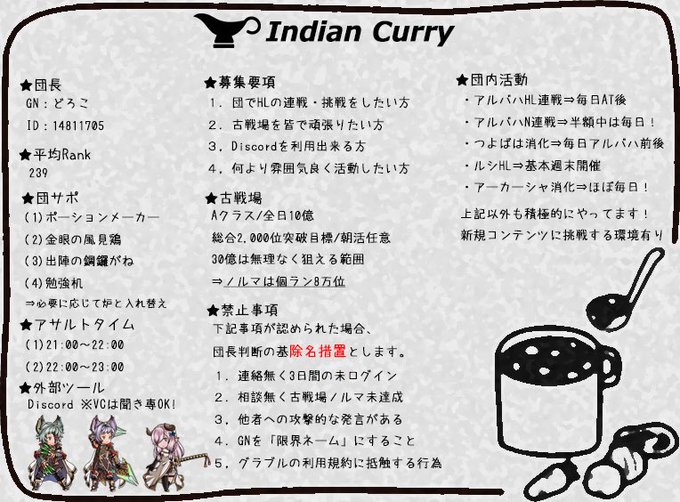 Indian Curry
★団長
GN：どろこ
ID：14811705
★平均Rank
239
★団サポ
(1)ポーションメーカー
(2)金眼の風見鶏
(3)出陣の鋼鑼がね
(4)勉強机
⇒必要に応じて炉と入れ替え
★アサルトタイム
(1)21:00～22:00
(2)22:00～23:00
★外部ツール
Discord ※VCは聞き専OK!
★募集要項
1．団でHLの連戦・挑戦をしたい方
2．古戦場を皆で頑張りたい方
3．Discordを利用出来る方
4．何より雰囲気良く活動したい方
★古戦場
Aクラス/全日10億
総合2,000位突破目標/朝活任意
30億は無理なく狙える範囲
⇒ノルマは個ラン8万位
★禁止事項
下記事項が認められた場合、
団長判断の基除名措置とします。
1．連絡無く3日間の未ログイン
2．相談無く古戦場ノルマ未達成
3．他者への攻撃的な発言がある
4．GNを「限界ネーム」にすること
5．グラブルの利用規約に抵触する行為
★団内活動
・アルバハHL連戦⇒毎日AT後
・アルバハN連戦⇒半額中は毎日！
・つよばは消化⇒毎日アルバハ前後
・ルシHL⇒基本週末開催
・アーカーシャ消化⇒ほぼ毎日！
上記以外も積極的にやってます！
新規コンテンツに挑戦する環境有り